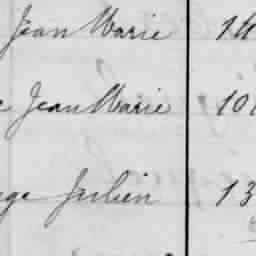 Jean Marie 14
e Jean Marie 10
ge Julien 13